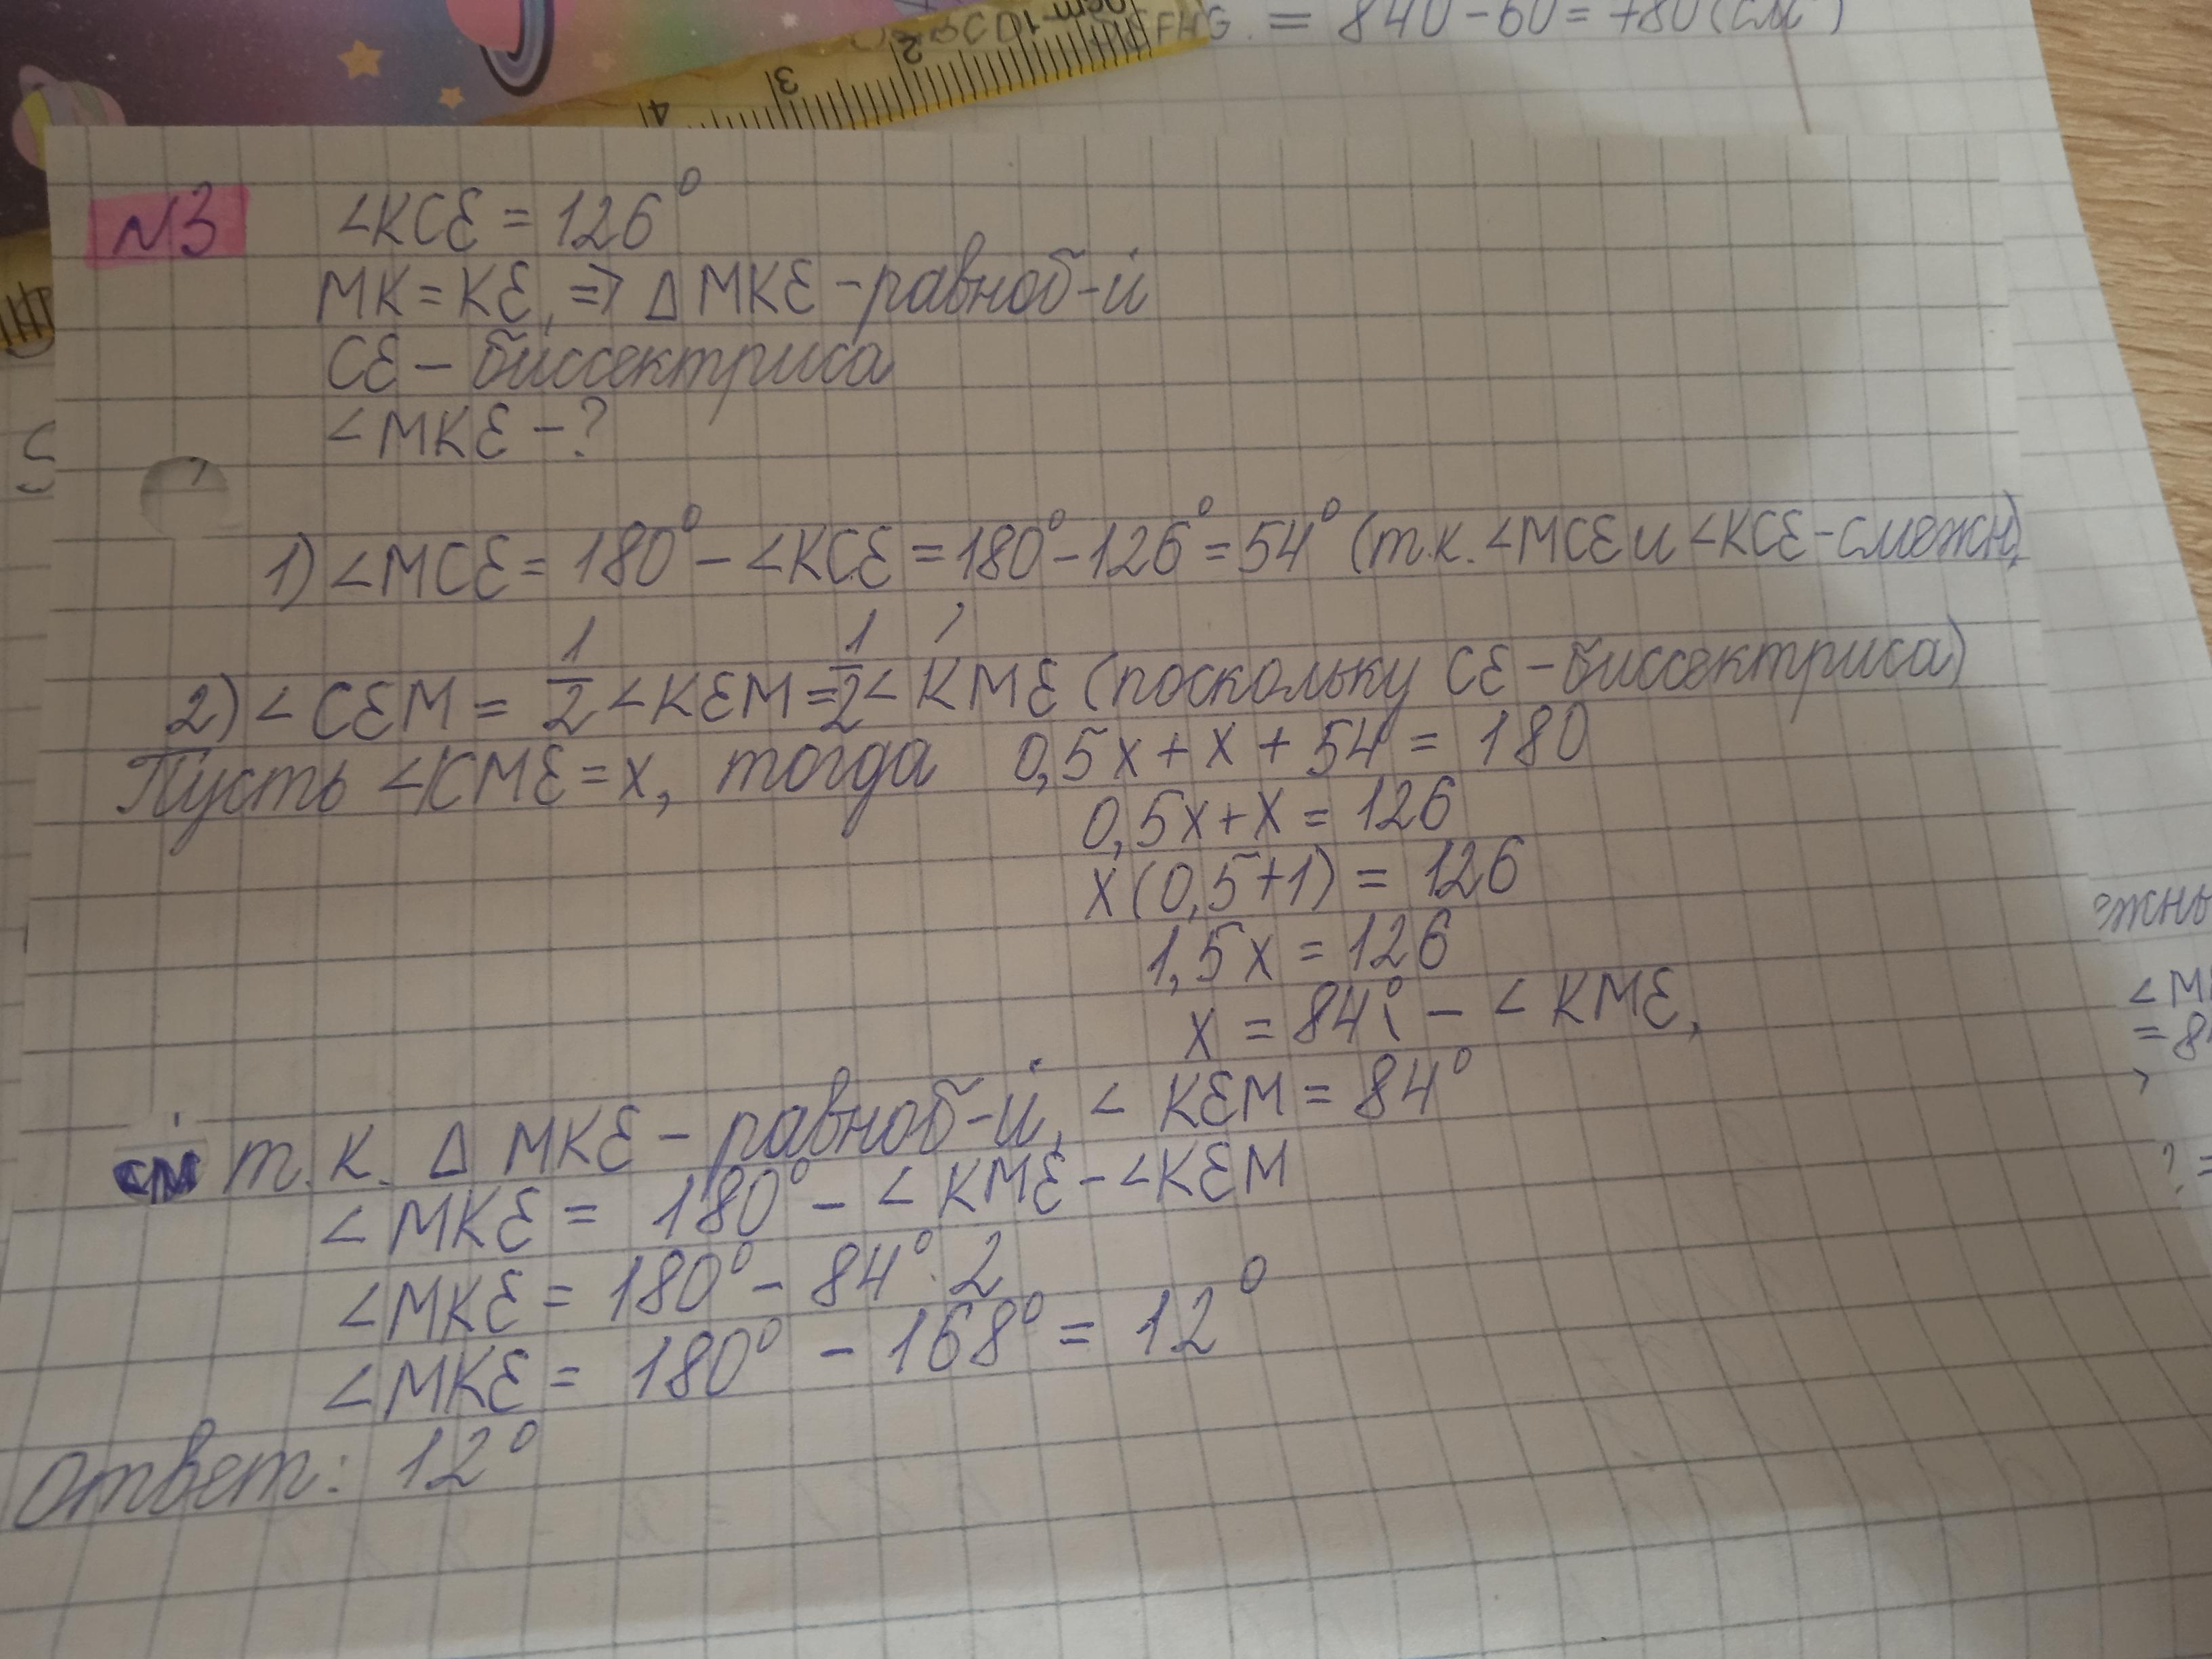 EFHG. = 840 - 60 = 780 (см²)
4 3 2 1 0 cm
N3 ∠KCE = 126°
MK = KE, => Δ MKE - равноб-й
CE - биссектриса
∠MKE - ?
1) ∠MCE = 180° - ∠KCE = 180° - 126° = 54° (т.к. ∠MCE и ∠KCE - смежн)
2) ∠CEM = 1/2 ∠KEM = 1/2 ∠KME (поскольку CE - биссектриса)
Пусть ∠KME = x, тогда 0,5x + x + 54 = 180
0,5x + x = 126
x(0,5+1) = 126
1,5x = 126
x = 84° - ∠KME,
т.к. Δ MKE - равноб-й, ∠KEM = 84°
∠MKE = 180° - ∠KME - ∠KEM
∠MKE = 180° - 84° · 2
∠MKE = 180° - 168° = 12°
Ответ: 12°